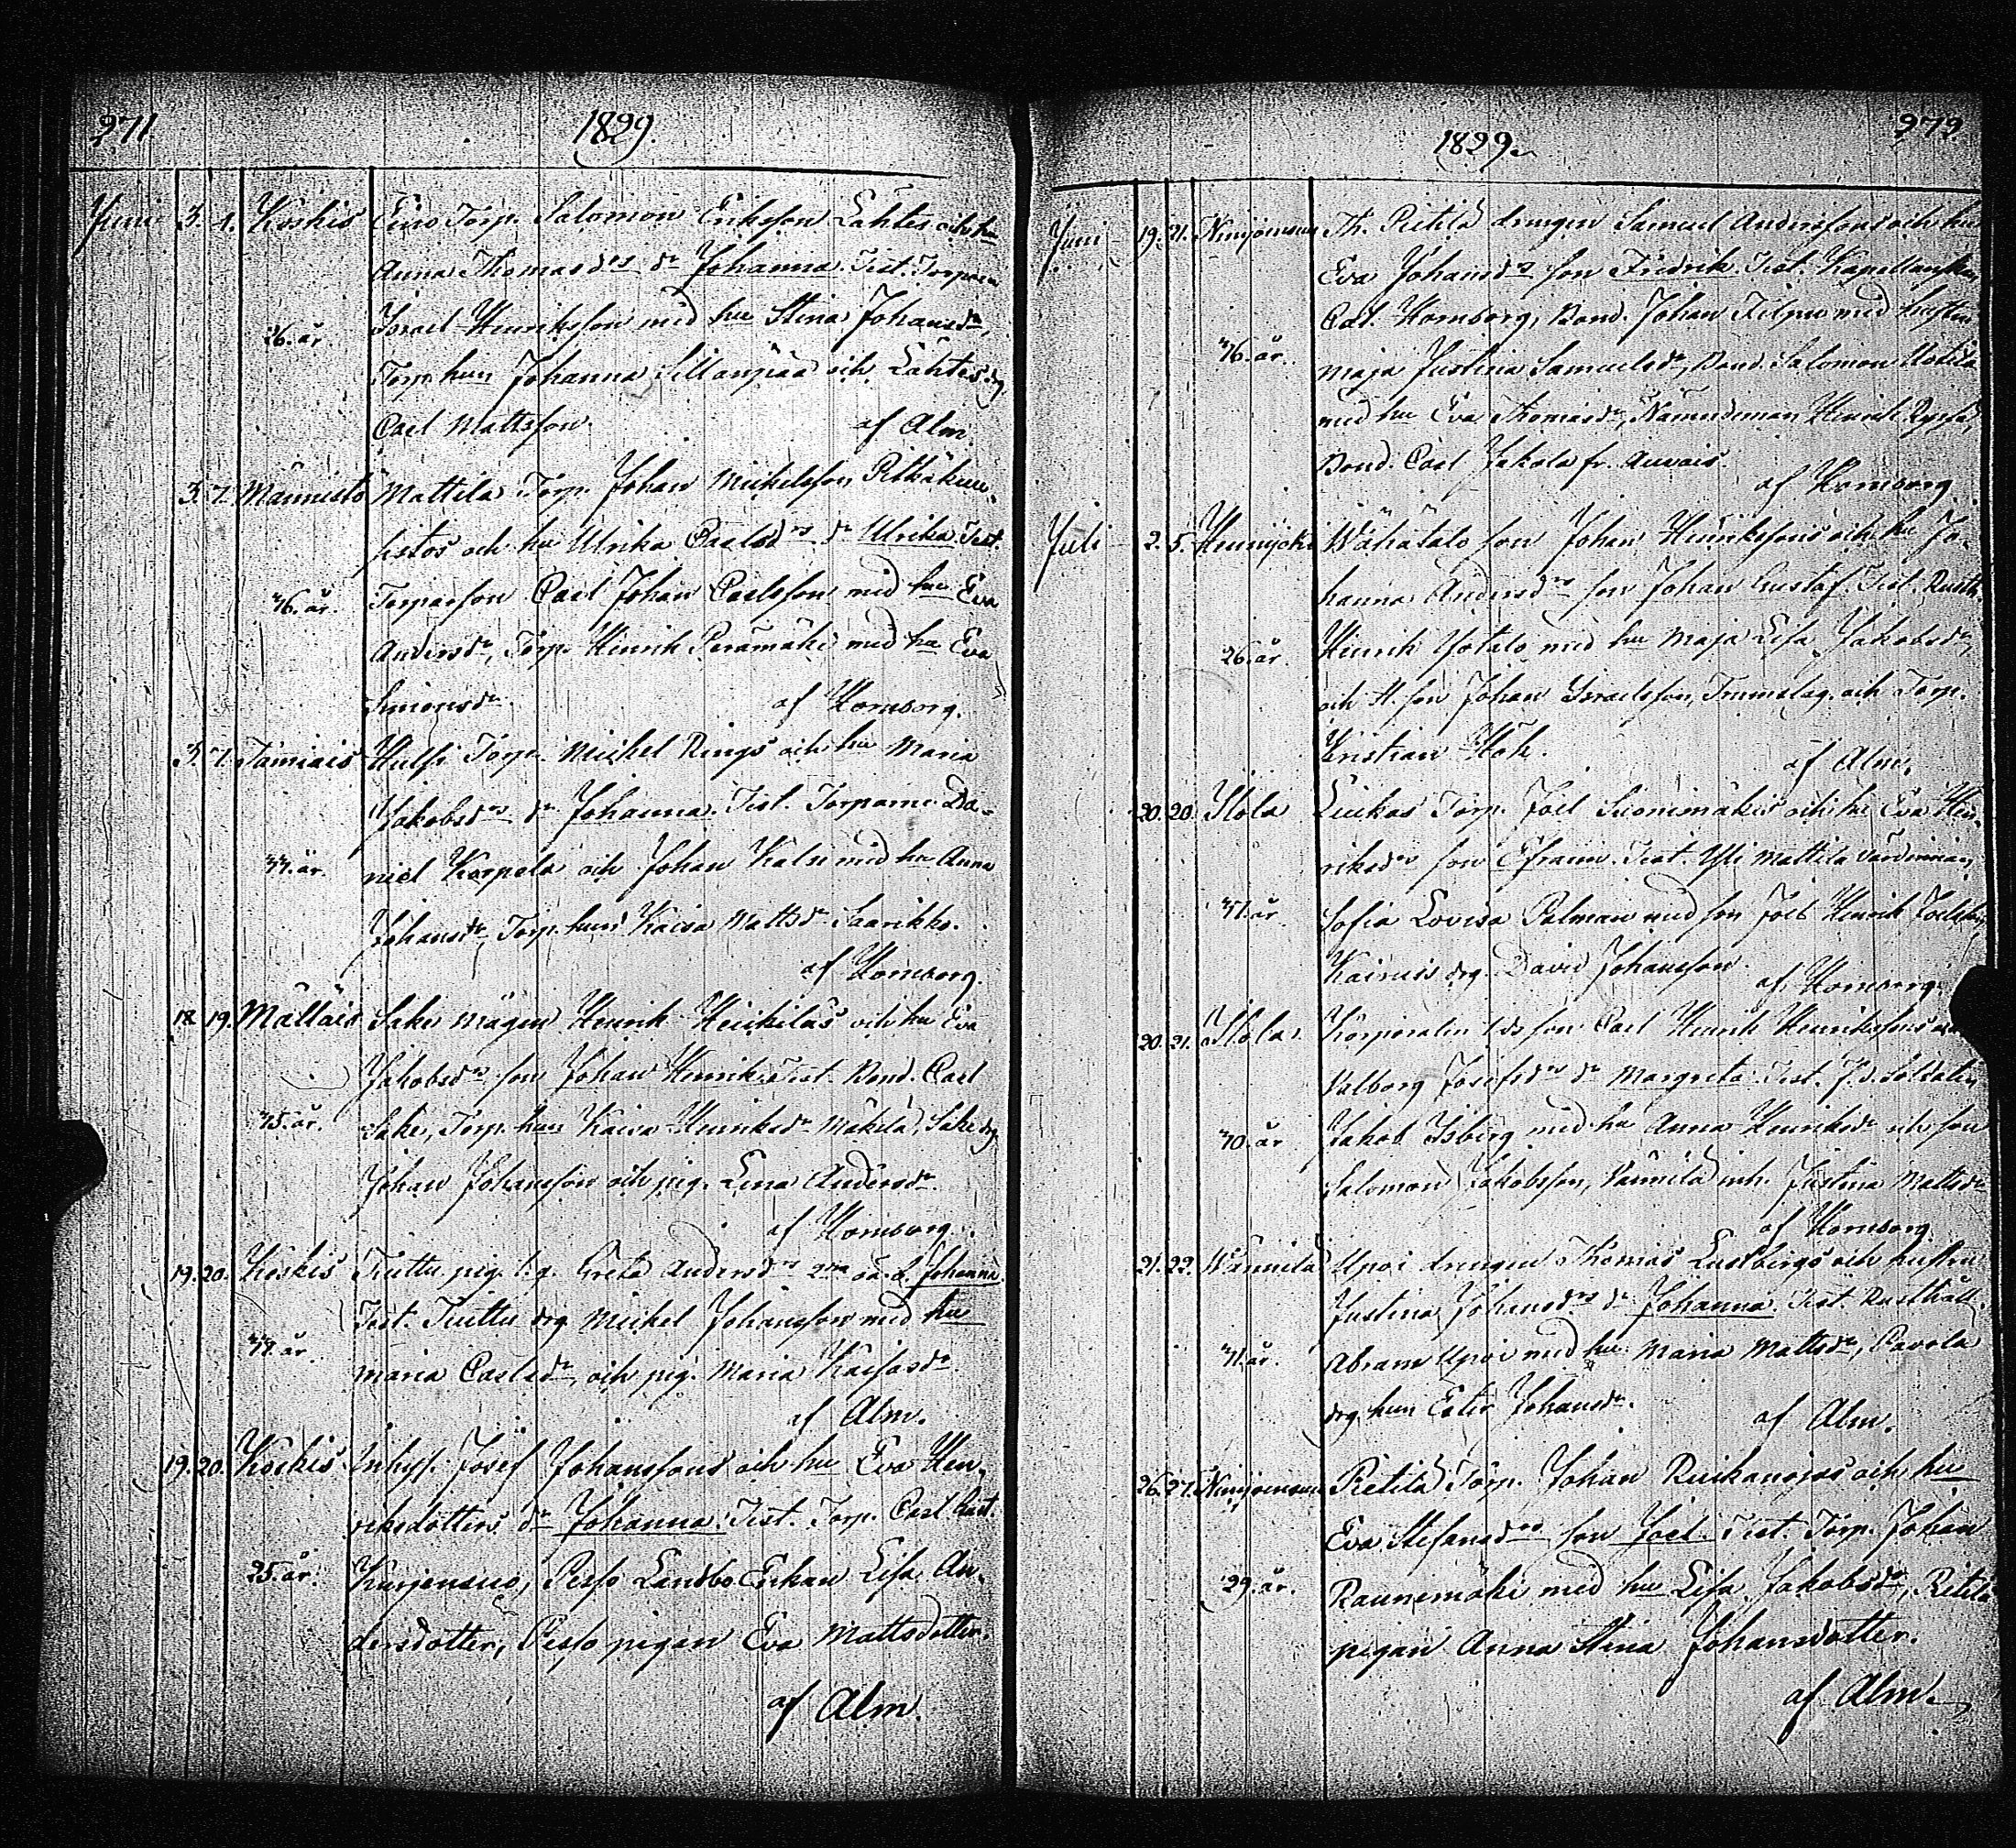 271
1829.
Juni 3. 7. Koskis Eino Torp. Salomon Eriksson Lahtis och hu
Anna Thomasdrs dr Johanna. Test. Torparen
26. år. Israel Henriksson med hu Stina Johansdr,
Torp. hun Johanna Sillanpää och Lähtes dg
Carl Mattsson. af Alm.
3. 7. Männistö Mattila Torp. Johan Michelsson Pitkäkun-
och hu Ulrika Carlsdrs dr Ulrika. Test.
46. år. Torparson Carl Johan Carlsson med hu Eva
Andersdr, Torp. Henrik Perämäki med hu Eva
Simonsdr. af Homborg.
3. 7. Torp. Michel Rings och hu Maria
Jakobsdrs dr Johanna. Test. Torparne Da-
niel Korpela och Johan med hu Anna
Johansdr, Torp. hun Kaisa Mattsdr Saarikko.
af Homborg.
18. 19. Mälläis Sake mågen Henrik Heickiläs och hu Eva
Jakobsdrs son Johan Henrik. Test. Bond. Carl
45. år. Sake, Torp. hun Kaisa Henriksdr Mäkilä, Sake dg
Johan Johansson och pig. Lena Andersdr.
af Homborg.
19. 20. Koskis Tuittu pig. Greta Andersdrs 2dra oä. d. Johanna.
Test. Tuittu drg Michel Johansson med hu
Maria Carlsdr, och pig. Maria
af Alm.
19. 20. Koskis Inhys. Josef Johanssons och hu Eva Hen-
riksdotters dr Johanna. Test. Torp. Carl Gust.
25. år. Kurjensuo, Pesso Landbo Enkan Lisa An-
dersdotter, Pesso pigan Eva Mattsdotter.
af Alm.
272
1829.
Juni 19. 21. Th. Pietilä drengen Samuel Anderssons och hu
Eva Johansdrs son Fredrik. Test.
Homborg, Bond. Johan Filpu med hustru
46. år. Maja Justina Samuelsdr, Bond. Salomon Uotila
med hu Eva Thomasdr, Nämndeman Henrik
Bond. Carl Jakola fr. Auvais.
af Homborg.
Juli 2. 5. Hennijoki Wähätalo son Johan Henrikssons och hu Jo-
hanna Andersdrs son Johan Gustaf. Test. Rusth.
26. år. Henrik Yötalo med hu Maja Lisa Jakobsdr,
och H. son Johan Israelsson, Trumslag. och Torp.
Kristian Hök. af Alm.
20. 20. Ylola Luukas Torp. Joel Suonimäkis och hu Eva Hen-
riksdrs son Efraim. Test. Yli Mattila värdinnan
41. år Sofia Lovisa Palman med son Joel Henrik Joelsson,
drg. David Johansson.
af Homborg.
20. 21. Ylola. son Carl Henrik Henrikssons och
Valborg Josefsdrs dr Margreta. Test. Soldaten
40. år Jakob Isberg med hu Anna Henriksdr och son
Salomon Jakobsson, Vännilä inh. Justina Mattsdr
af Homborg.
21. 22. Wännilä Upoi drengen Thomas Lustbergs och hustru
Justina Johansdrs dr Johanna. Test. Rusthåll.
41. år. Abram Upoi med hu Maria Mattsdr, Pavola
drg. hun Ester Johansdr. af Alm.
26. 27. Pietilä Torp. Johan och hu
Eva Stefansdrs son Joel. Test. Torp. Johan
29. år. Raunimäki med hu Lisa Jakobsdr,
pigan Anna Stina Johansdotter.
af Alm.